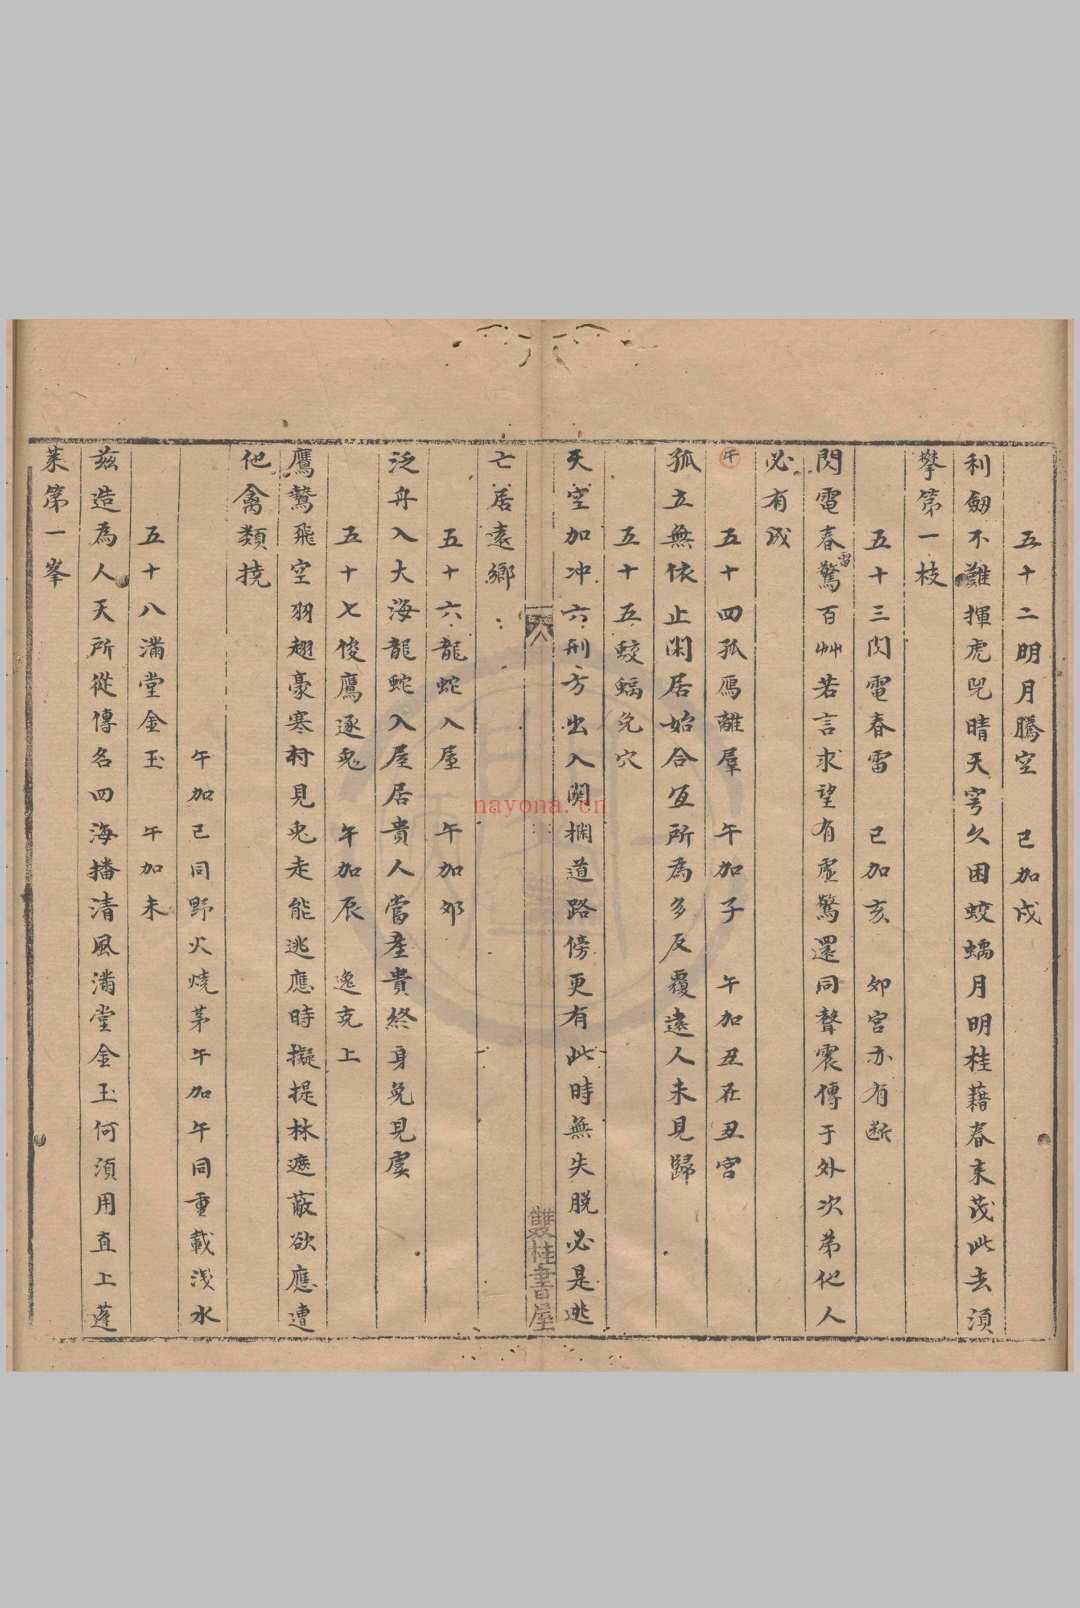 五十二明月騰空　巳加戌
利劍不難揮虎兕晴天穹久困蛟螭月明桂藉春來茂此去須
攀第一枝
五十三閃電春雷　巳加亥　卯宮亦有断
閃電春雷驚百艸若言求望有虛驚還同聲震傳于外次第化人
必有成
午　五十四孤鴈離羣　午加子　午加丑在丑宮
孤立無依止閑居始合宜所為多反覆遠人未見歸
五十五蛟螭兔穴
天空加冲六刑方出入関捆道路傍更有此時無失脱必是逃
亡居遠鄉
六
雙桂書屋
五十六龍蛇入屋　午加卯
泛舟入大海龍蛇入屋居貴人當産貴終身免見虞
五十七俊鷹逐兔　午加辰　逸克上
鷹鷙飛空羽翅豪寒村見兔走能逃應時擬提林遮蔽欲應遭
他禽類撓
午加巳同野火燒茅午加午同重載淺水
五十八滿堂金玉　午加未
兹造為人天所從傳名四海播清風滿堂金玉何須用直上蓬
萊第一峯
nayona.cn